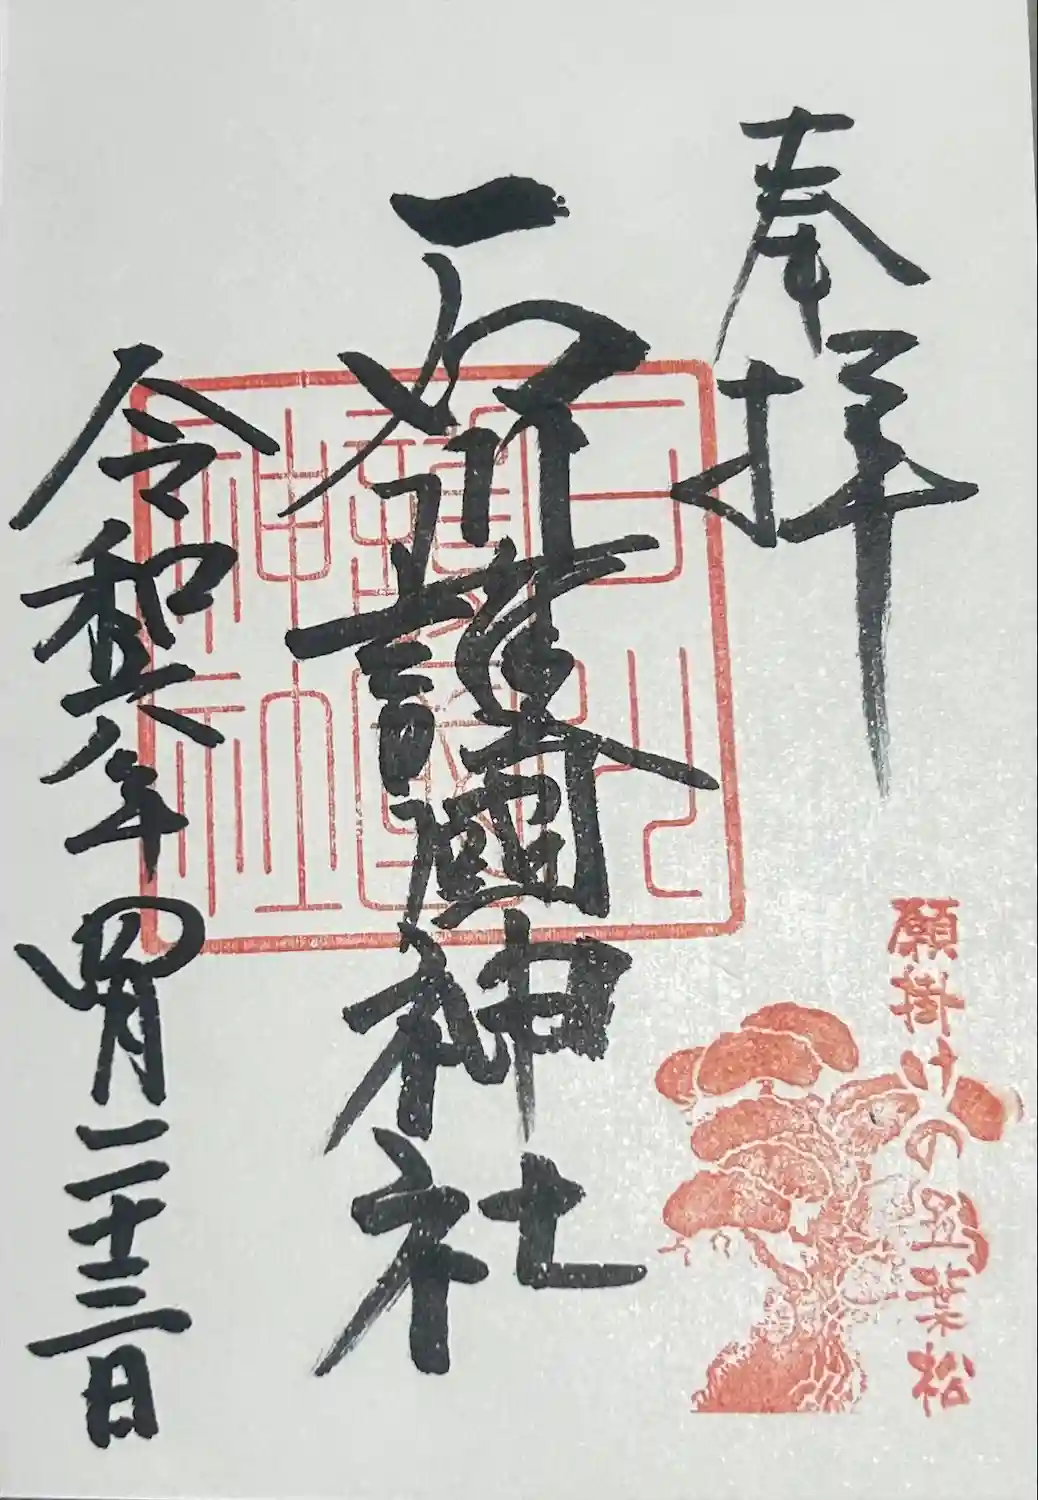 奉拝
護國神社
令和六年四月二十三日
願掛けの五葉松
護國
神社